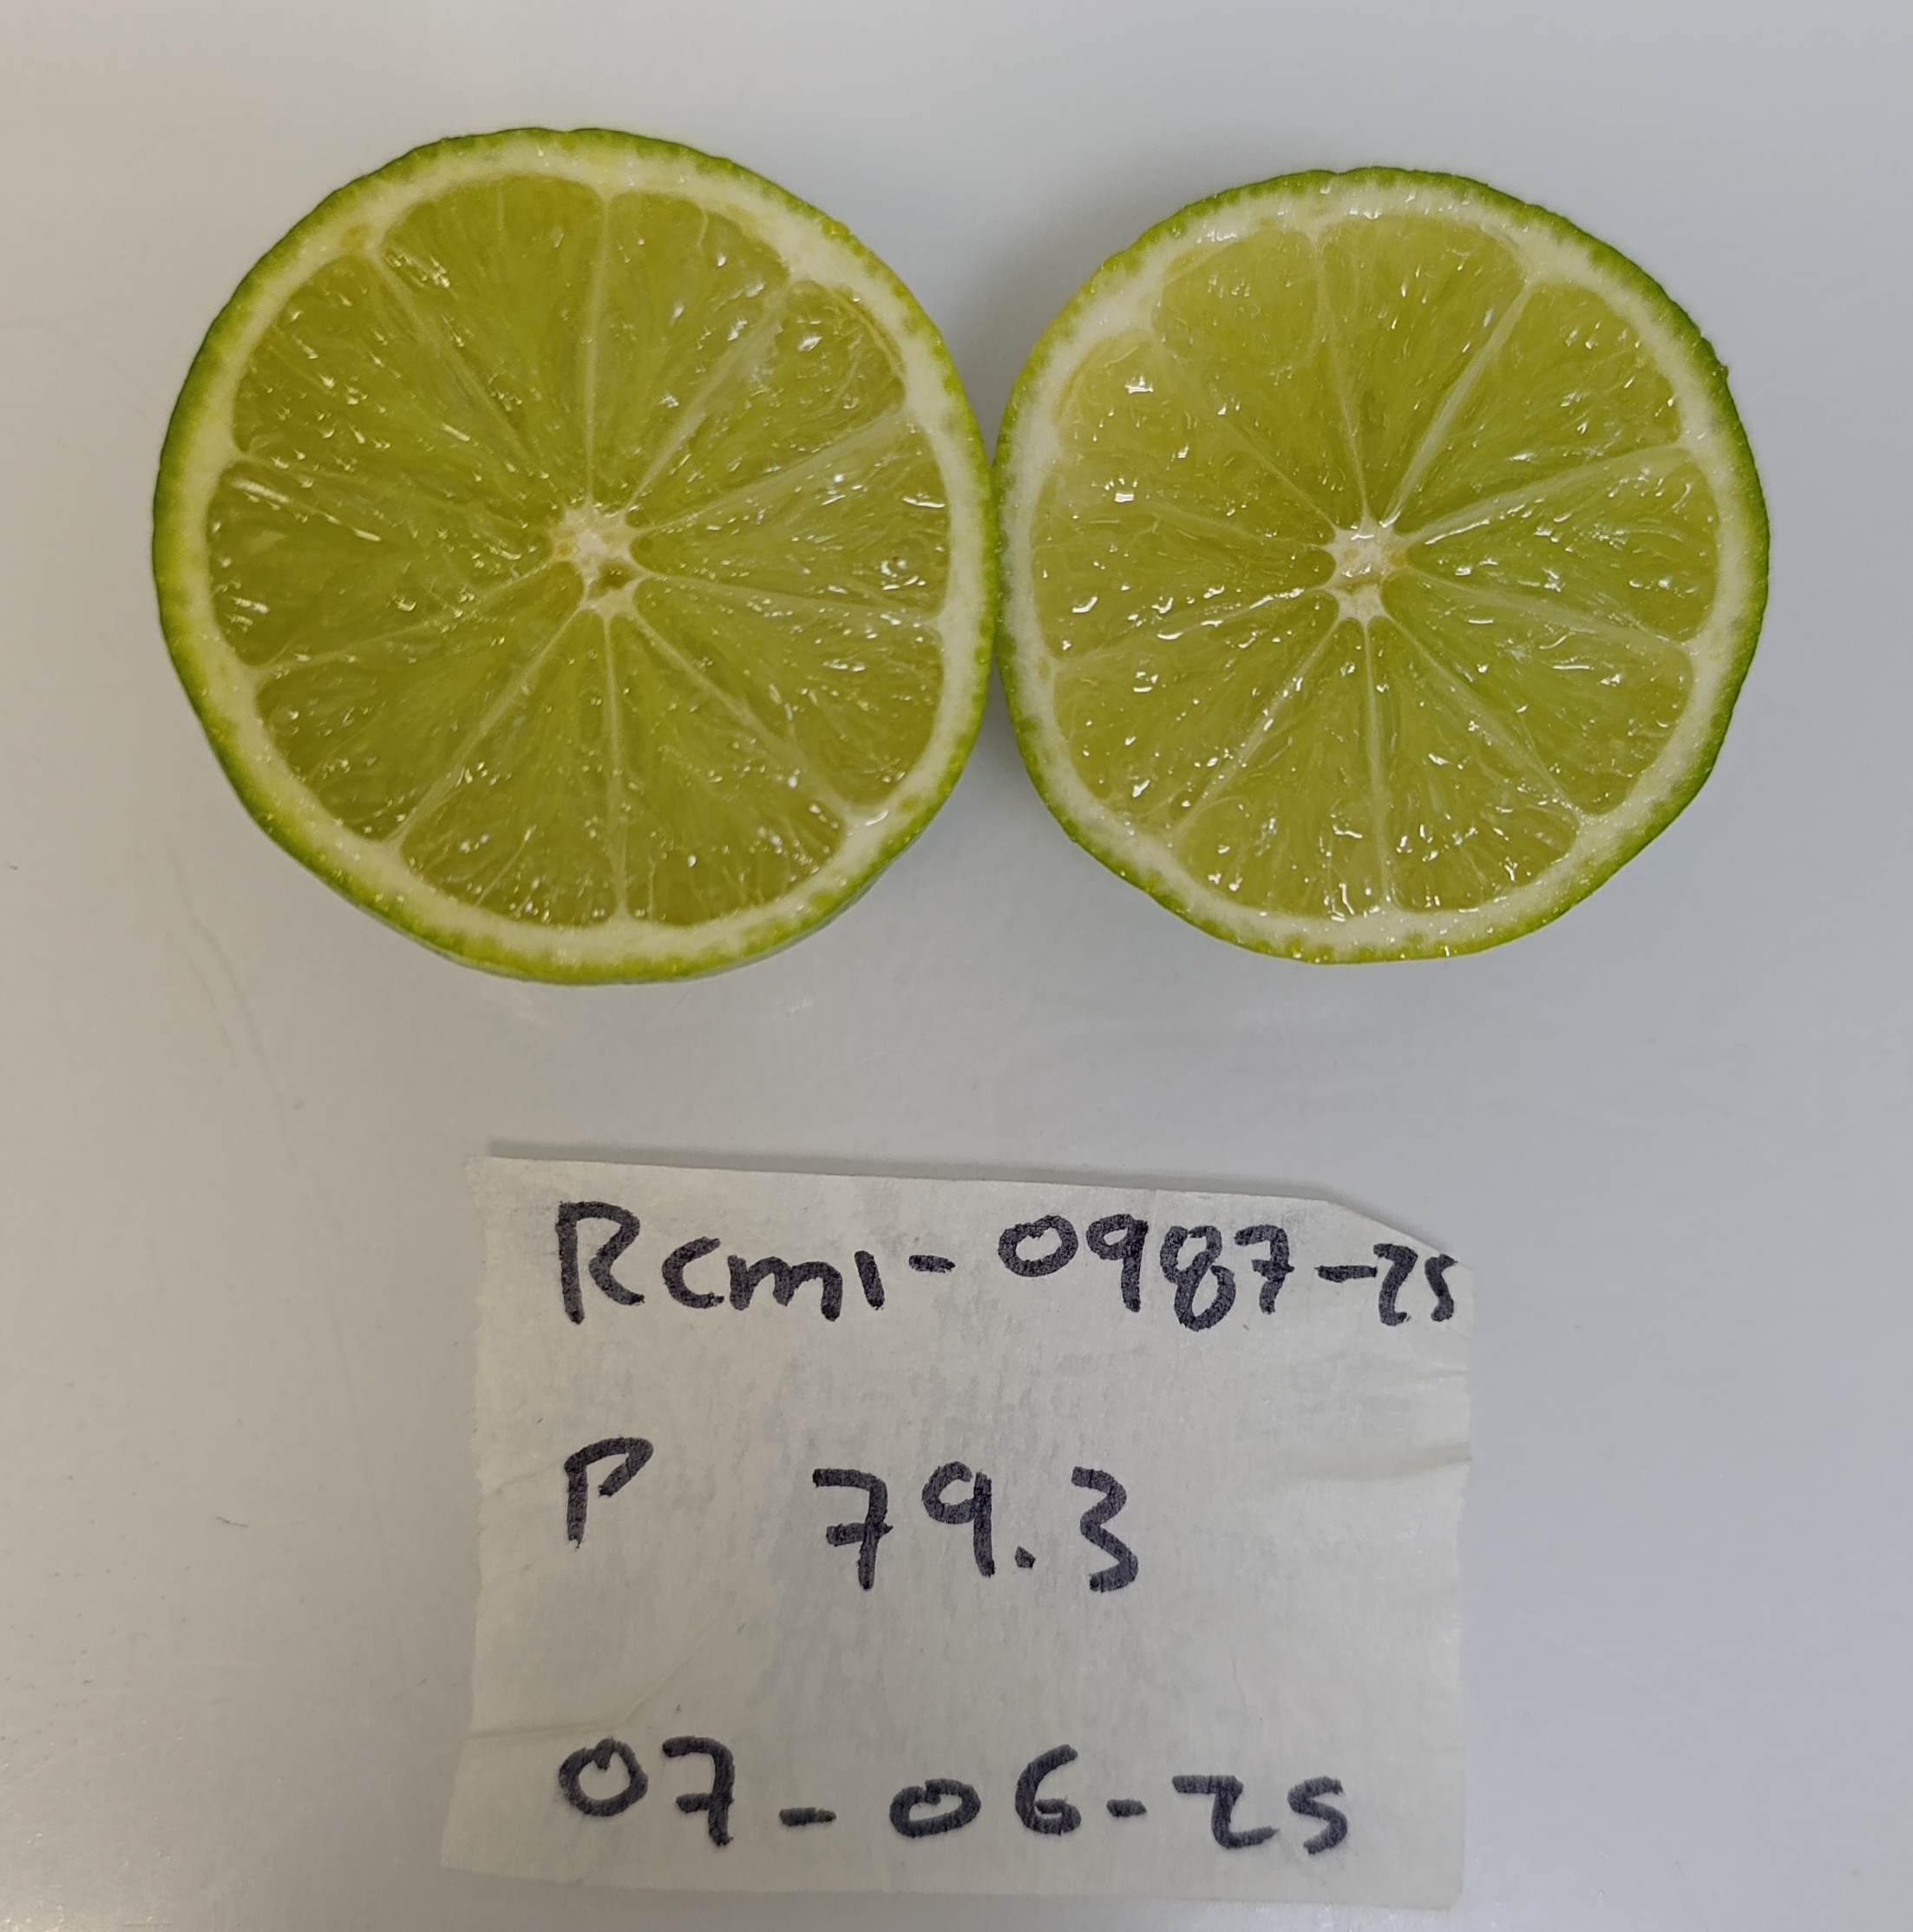 Rcm1-0987-25
P 79.3
07-06-25